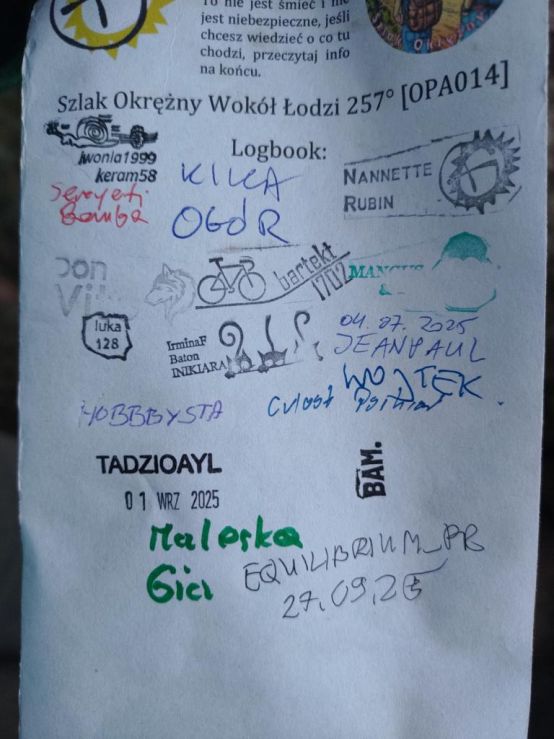 To nie jest śmieć i nie
jest niebezpieczne, jeśli
chcesz wiedzieć o co tu
chodzi, przeczytaj info
na końcu.
Szlak Okrężny Wokół Łodzi 257° [OPA014]
Logbook:
iwonia1999
keram58
KILKA
OGÓR
NANNETTE
RUBIN
bartekt
1702
luka
128
IrminaF
Baton
INIKIARA
04.07.2025
JEANPAUL
WOJTEK
HOBBBYSTA
TADZIOAYL
01 WRZ 2025
BAM.
Gici
EQUILIBRIUM_PB
27.09.25